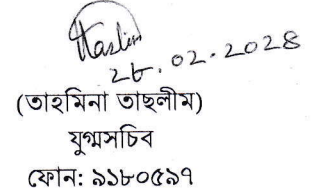 ২৮.০২.২০২৪
(তাহমিনা তাছলীম)
যুগ্মসচিব
ফোন: ৯১৮০৫৯৭